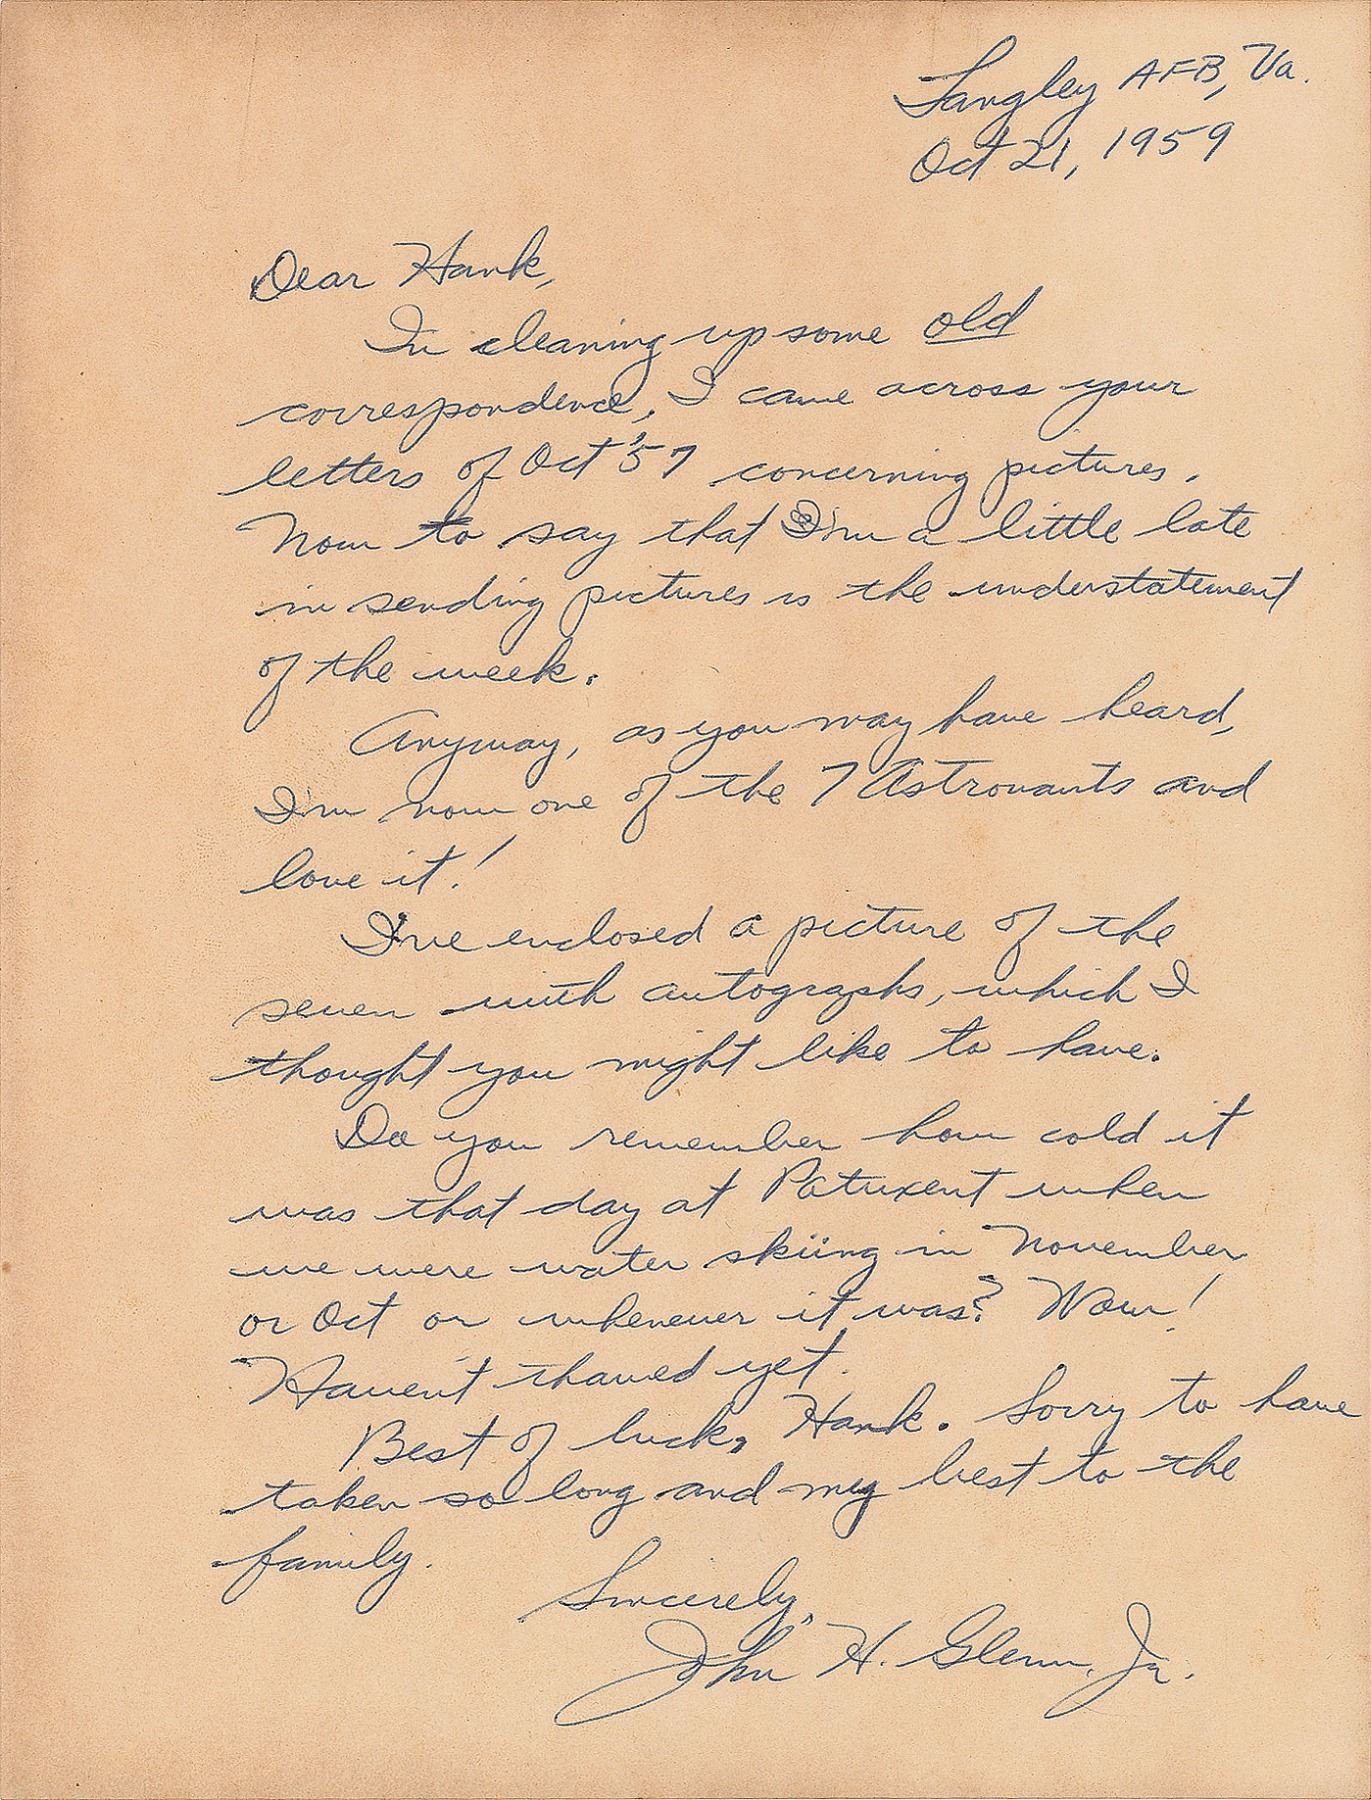 Langley AFB, Va.
Oct 21, 1959
Dear Hank,
In cleaning up some old
correspondence, I came across your
letters of Oct '57 concerning pictures.
Now to say that I'm a little late
in sending pictures is the understatement
of the week.
Anyway, as you may have heard,
I'm now one of the 7 Astronauts and
love it!
I've enclosed a picture of the
seven with autographs, which I
thought you might like to have.
Do you remember how cold it
was that day at Patuxent when
we were water skiing in November
or Oct or whenever it was? Wow!
Haven't thawed yet.
Best of luck, Hank. Sorry to have
taken so long and my best to the
family.
Sincerely,
John H. Glenn, Jr.